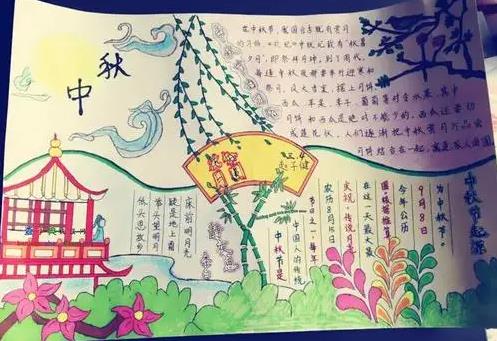 中秋
在中秋节，我国自古就有赏月
的习俗，《礼记》中就记载有“秋暮
夕月”，即祭拜月神，到了周代，
每逢中秋夜都要举行迎寒和
祭月，设大香案，摆上月饼
西瓜、苹果、李子、葡萄等时令水果，其中
月饼和西瓜是绝对不能少的，西瓜还要切
成莲花状，人们逐渐把中秋赏月与品尝
月饼结合在一起，寓意家人团圆
床前明月光
疑是地上霜
举头望明月
低头思故乡
中秋节起源
为中秋节。
9月8日
今年公历
在这一天最大最
农历8月15日
节日之一，每年
中国人的传统
中秋节是